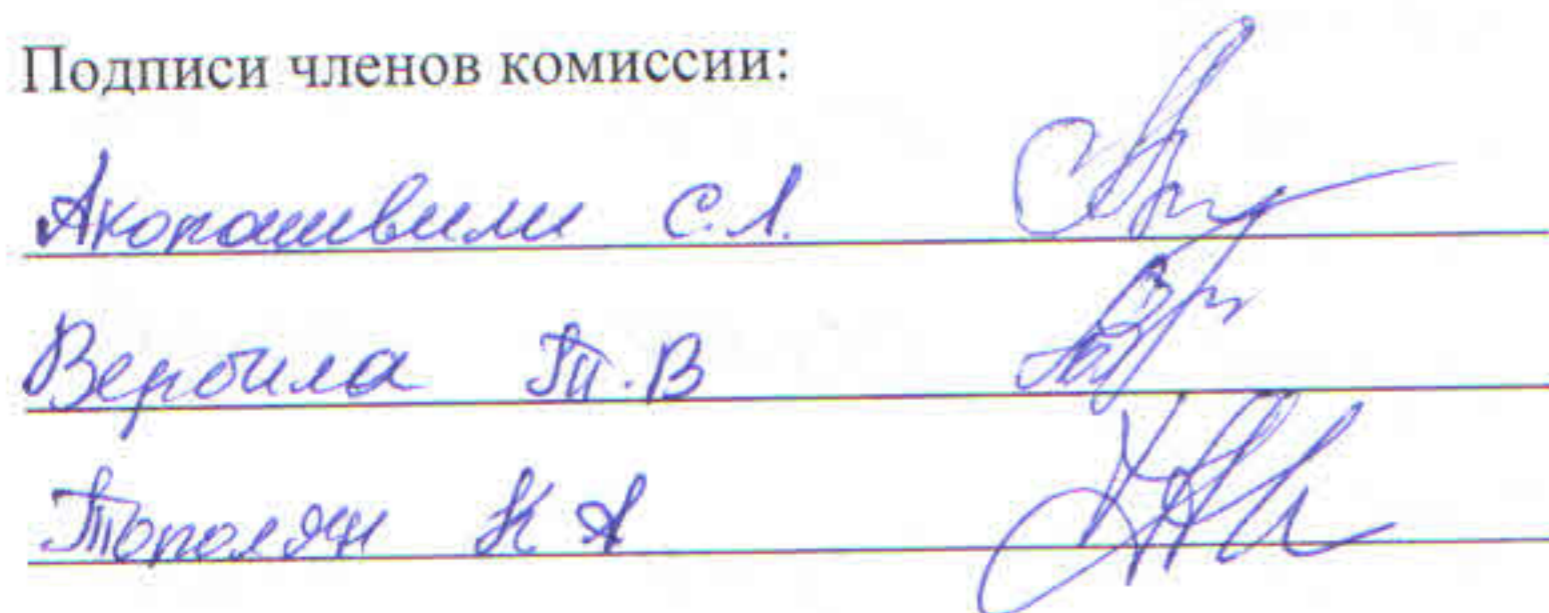 Подписи членов комиссии:
Акопашвили С.Л.
Вербила Т.В
Тополян К А